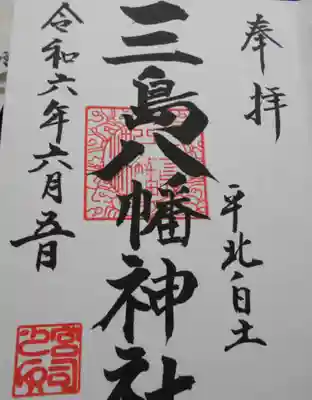 奉拝
平北白土
三島八幡神社
令和六年六月五日